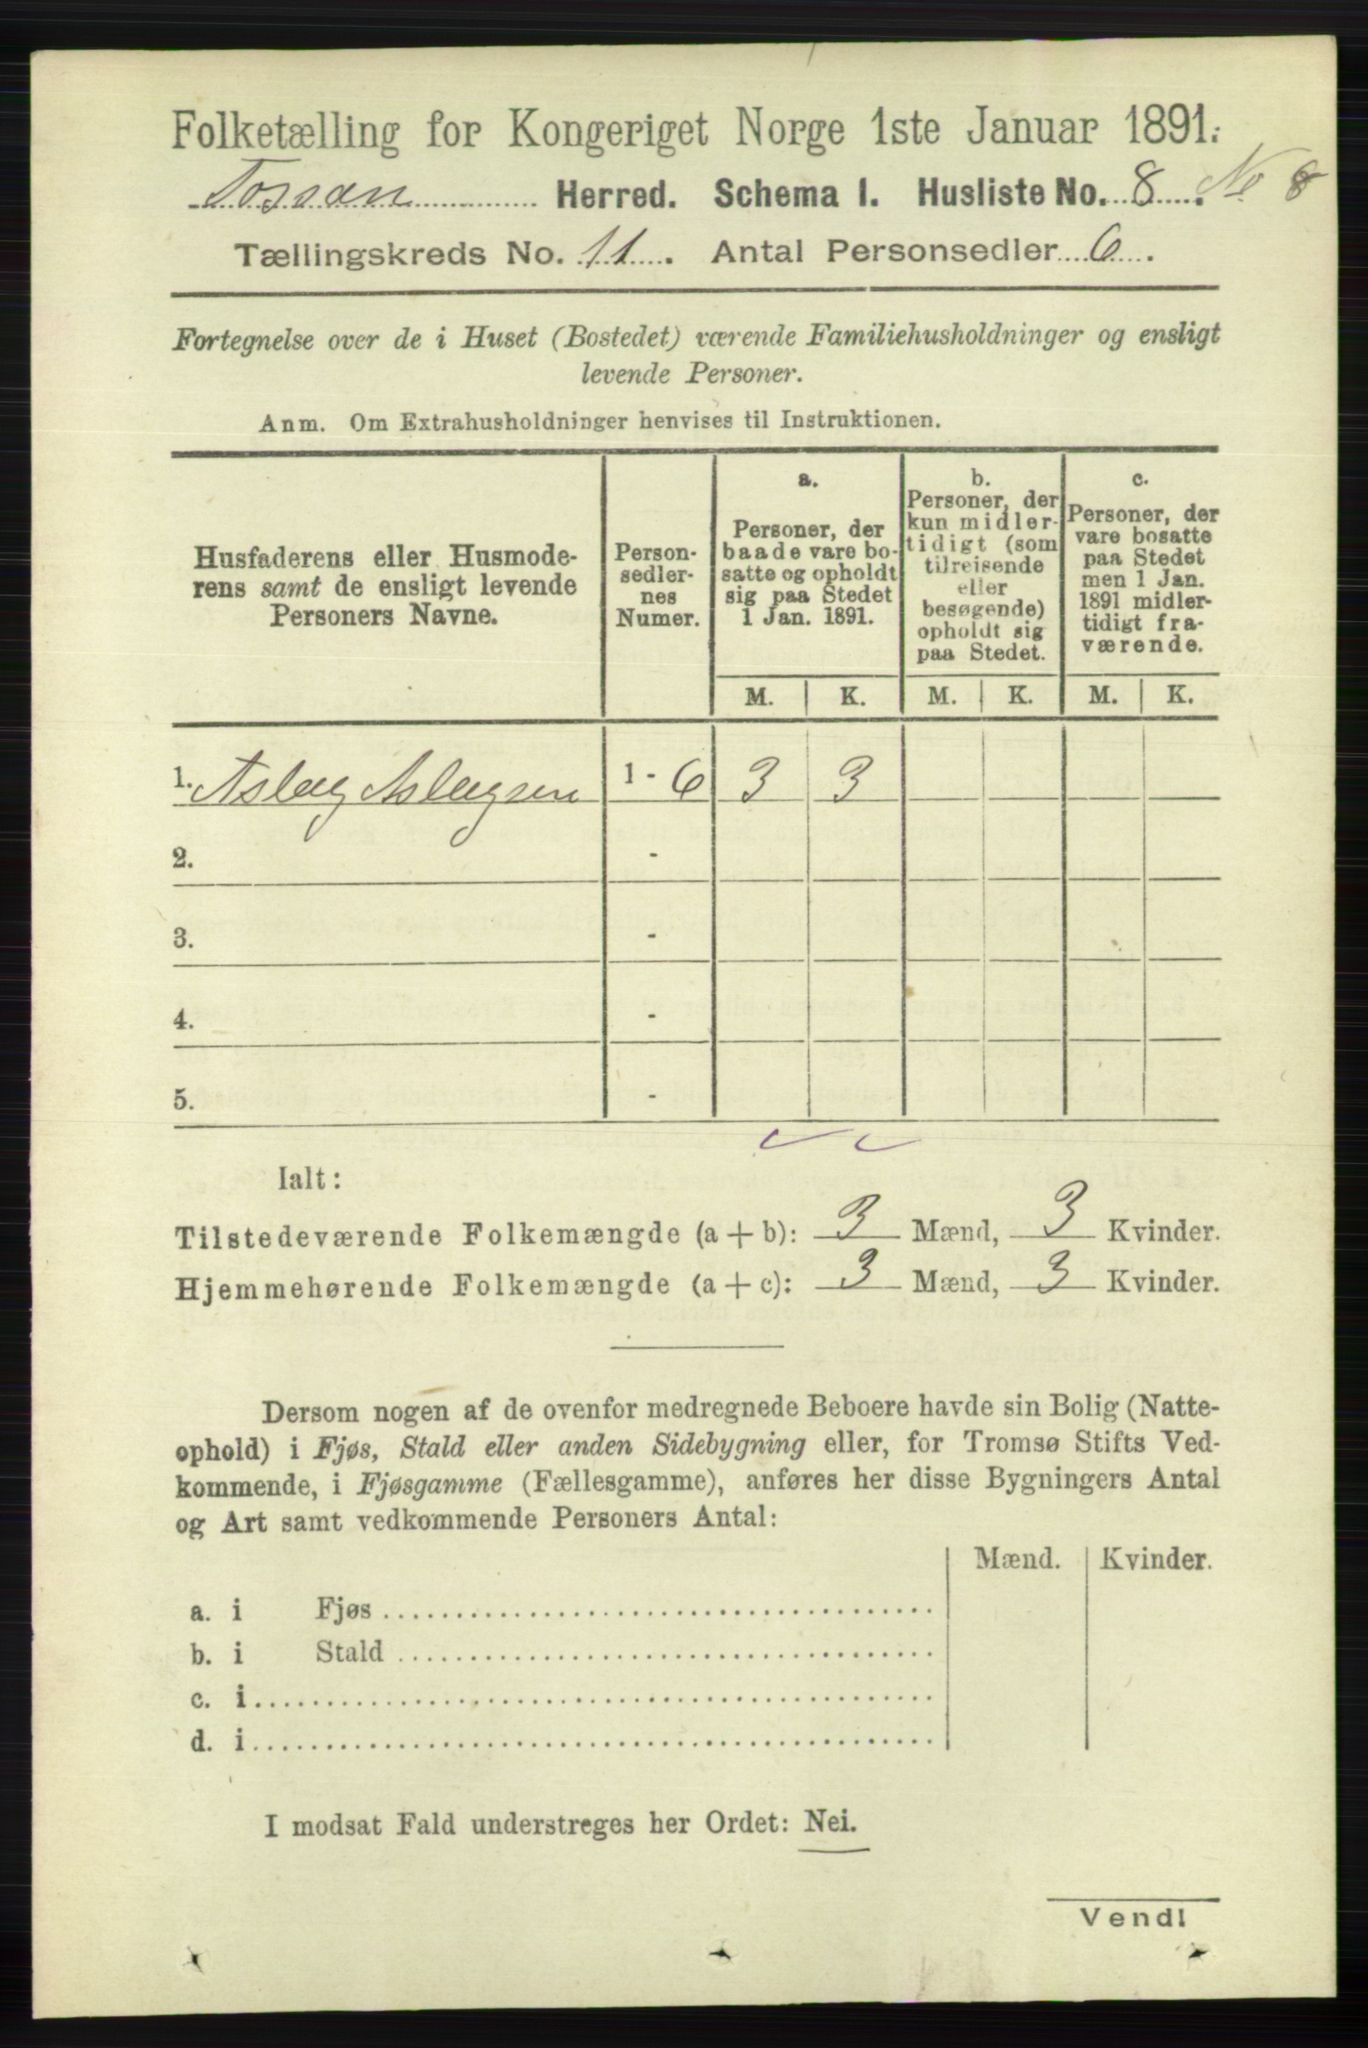 Folketælling for Kongeriget Norge 1ste Januar 1891.
Fossan Herred. Schema I. Husliste No. 8. No 8
Tællingskreds No. 11. Antal Personsedler 6.
Fortegnelse over de i Huset (Bostedet) værende Familiehusholdninger og ensligt
levende Personer.
Anm. Om Extrahusholdninger henvises til Instruktionen.
Husfaderens eller Husmode-
rens samt de ensligt levende
Personers Navne.
Person-
sedler-
nes
Numer.
a.
Personer, der
baade vare bo-
satte og opholdt
sig paa Stedet
1 Jan. 1891.
b.
Personer, der
kun midler-
tidigt (som
tilreisende
eller
besøgende)
opholdt sig
paa Stedet.
c.
Personer, der
vare bosatte
paa Stedet
men 1 Jan.
1891 midler-
tidigt fra-
værende.
M. K. M. K. M. K.
1. Aslag Aslagsen 1 - 6 3 3
2. -
3. -
4. -
5. -
Ialt:
Tilstedeværende Folkemængde (a + b): 3 Mænd, 3 Kvinder.
Hjemmehørende Folkemængde (a + c): 3 Mænd, 3 Kvinder.
Dersom nogen af de ovenfor medregnede Beboere havde sin Bolig (Natte-
ophold) i Fjøs, Stald eller anden Sidebygning eller, for Tromsø Stifts Ved-
kommende, i Fjøsgamme (Fællesgamme), anføres her disse Bygningers Antal
og Art samt vedkommende Personers Antal:
Mænd. Kvinder.
a. i Fjøs
b. i Stald
c. i
d. i
I modsat Fald understreges her Ordet: Nei.
Vend!